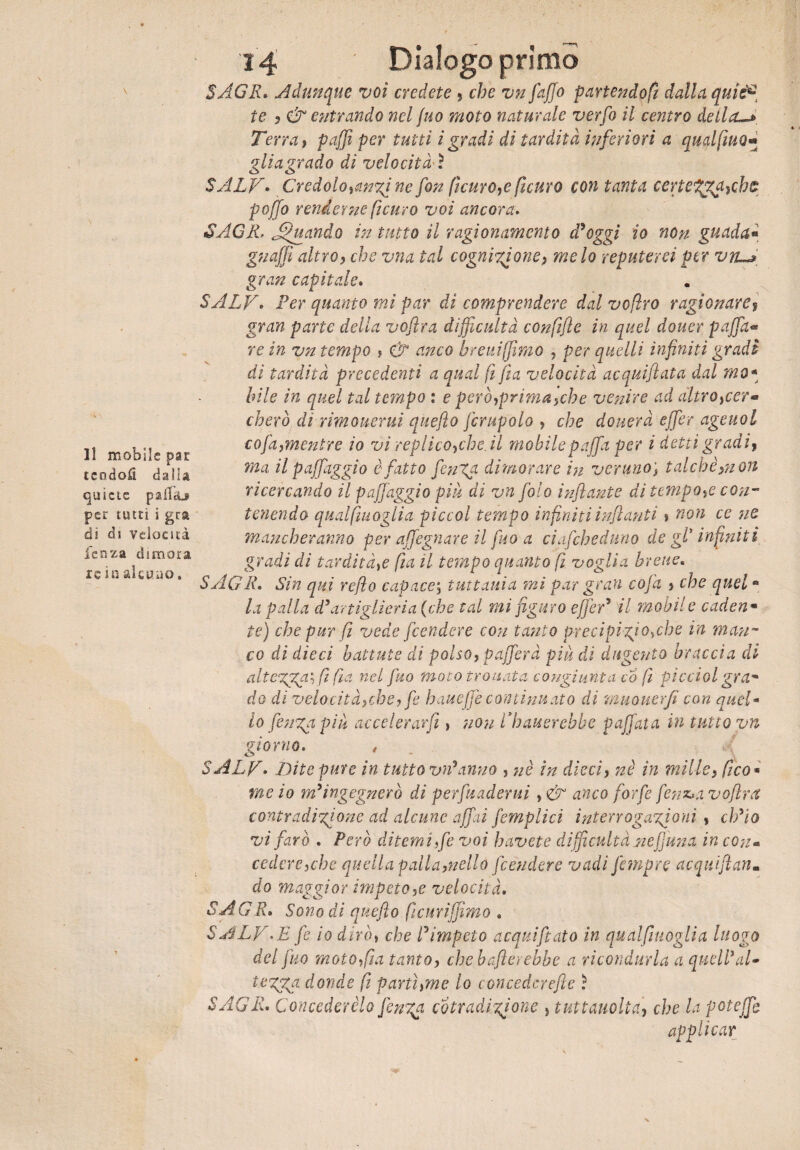 14 Dialogo primo
SAGR. Adunque voi credete, che vn ſaſſo partendoſi dalla quie-
te, & entrando nel ſuo moto naturale verſo il centro della
Terra, paſſi per tutti i gradi di tardità inferiori a qualſiuo-
gliagrado di velocità?
SALV. Credolo, anzi ne ſon ſicuro, e ſicuro con tanta certezza, che
poſſo renderne ſicuro voi ancora.
SAGR. Quando in tutto il ragionamento d'oggi io non guada-
gnaſſi altro, che vna tal cognizione, me lo reputerei per vn
gran capitale.
SALV. Per quanto mi par di comprendere dal voſtro ragionare,
gran parte della voſtra difficultà conſiſte in quel douer paſſa-
re in vn tempo, & anco breuiſſimo, per quelli infiniti gradi
di tardità precedenti a qual ſi ſia velocità acquiſtata dal mo-
bile in quel tal tempo: e però, prima, che venire ad altro, cer-
cherò di rimouerui queſto ſcrupolo, che douerà eſſer ageuol
coſa, mentre io vi replico, che il mobile paſſa per i detti gradi,
ma il paſſaggio è fatto ſenza dimorare in veruno; talchè, non
ricercando il paſſaggio più di vn ſolo inſtante di tempo, e con-
tenendo qualſiuoglia piccol tempo infiniti inſtanti, non ce ne
mancheranno per aſſegnare il ſuo a ciaſcheduno de gl' infiniti
gradi di tardità, e ſia il tempo quanto ſi voglia breue.
Il mobile par
tendoſi dalla
quiete paſſa
per tutti i gra
di di velocità
ſenza dimora
re in alcuno.
SAGR. Sin qui reſto capace; tuttauia mi par gran coſa, che quel-
la palla d'artiglieria (che tal mi figuro eſſer' il mobile caden-
te) che pur ſi vede ſcendere con tanto precipizio, che in man-
co di dieci battute di polso, paſſerà più di dugento braccia di
altezza; ſi ſia nel ſuo moto trouata congiunta cō ſi picciol gra-
do di velocità, che, ſe haueſſe continuato di muouerſi con quel-
lo ſenza più accelerarſi, non l'hauerebbe paſſata in tutto vn
giorno.
SALV. Dite pure in tutto vn'anno, nè in dieci, nè in mille, ſico-
me io m'ingegnerò di perſuaderui, & anco forſe ſenza voſtra
contradizione ad alcune aſſai ſemplici interrogazioni, ch'io
vi farò. Però ditemi, ſe voi hauete difficultà neſſuna in con-
cedere, che quella palla, nello ſcendere vadi ſempre acquiſtan-
do maggior impeto, e velocità.
SAGR. Sono di queſto ſicuriſſimo.
SALV. E ſe io dirò, che l'impeto acquiſtato in qualſiuoglia luogo
del ſuo moto, ſia tanto, che baſterebbe a ricondurla a quell'al-
tezza donde ſi partì, me lo concedereſte?
SAGR. Concederèlo ſenza cōtradizione, tuttauolta, che la poteſſe
applicar